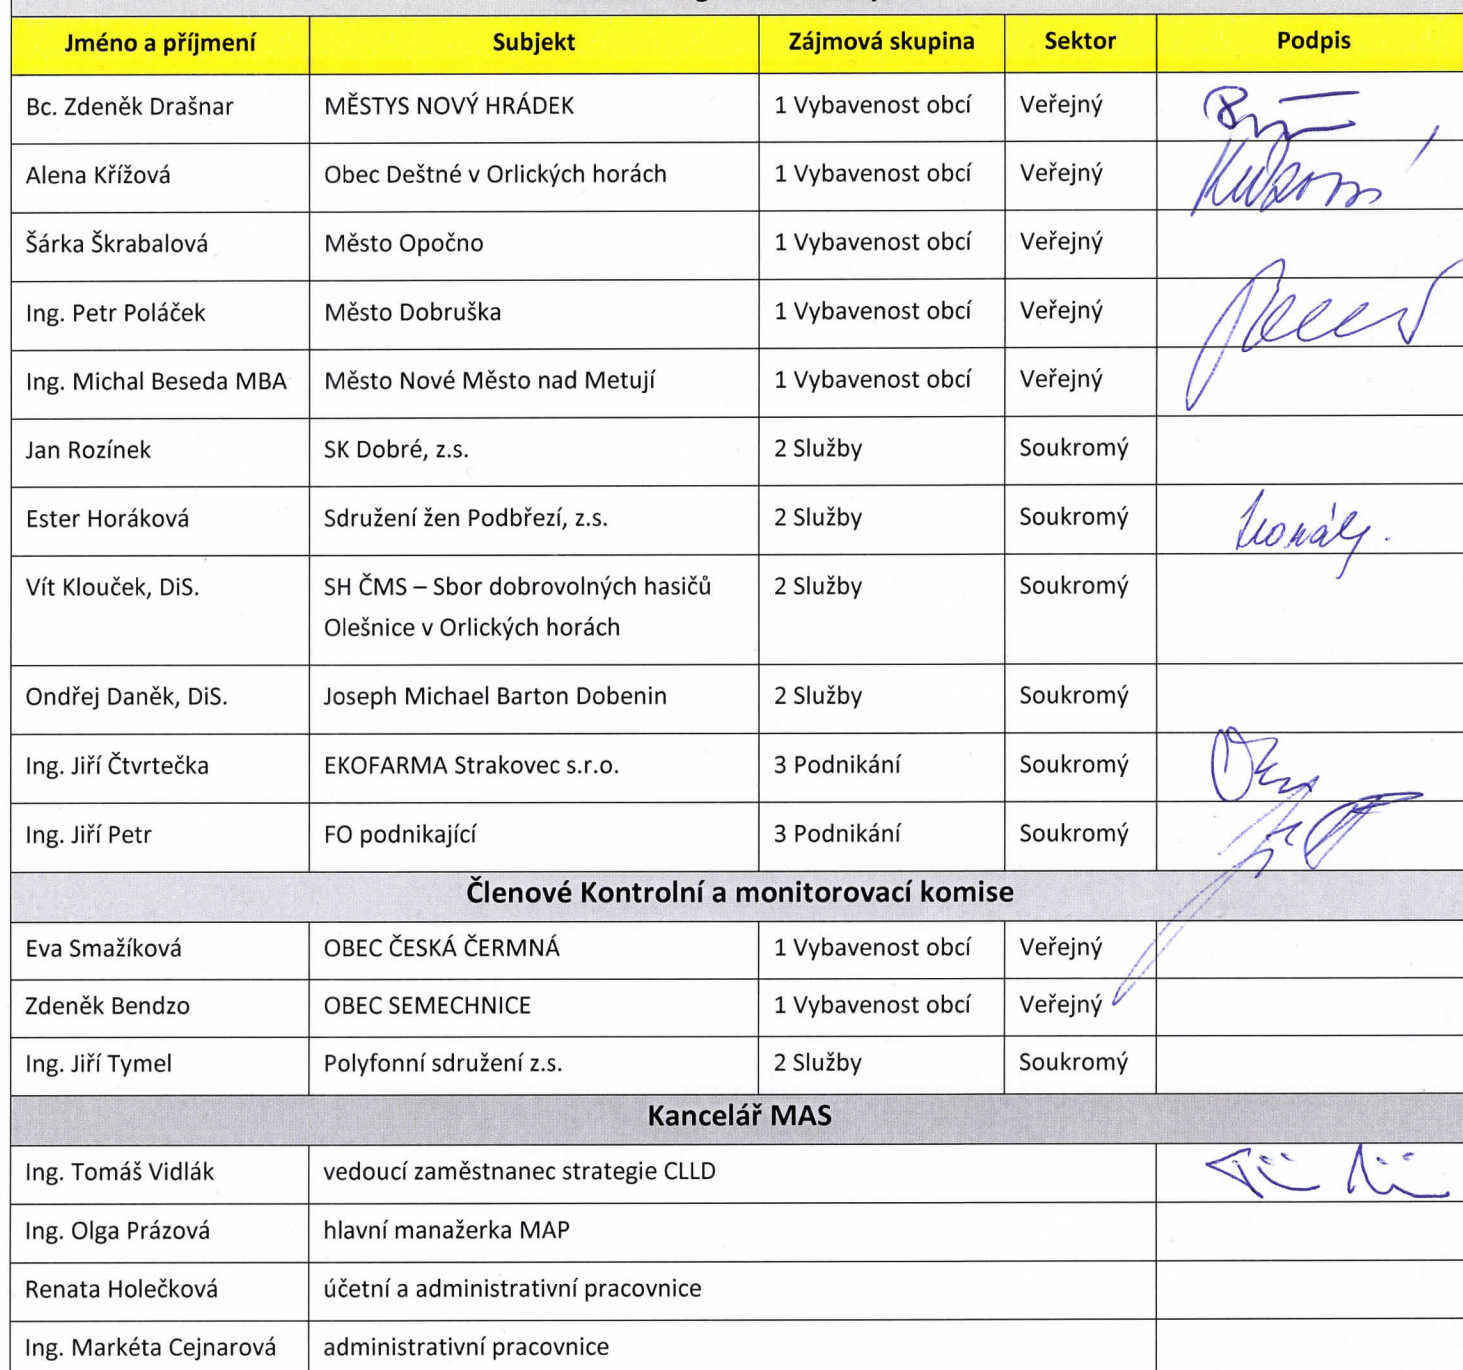 Jméno a příjmení Subjekt Zájmová skupina Sektor Podpis
Bc. Zdeněk Drašnar MĚSTYS NOVÝ HRÁDEK 1 Vybavenost obcí Veřejný
Alena Křížová Obec Deštné v Orlických horách 1 Vybavenost obcí Veřejný
Šárka Škrabalová Město Opočno 1 Vybavenost obcí Veřejný
Ing. Petr Poláček Město Dobruška 1 Vybavenost obcí Veřejný
Ing. Michal Beseda MBA Město Nové Město nad Metují 1 Vybavenost obcí Veřejný
Jan Rozínek SK Dobré, z.s. 2 Služby Soukromý
Ester Horáková Sdružení žen Podbřezí, z.s. 2 Služby Soukromý
Vít Klouček, DiS. SH ČMS – Sbor dobrovolných hasičů 2 Služby Soukromý
Olešnice v Orlických horách
Ondřej Daněk, DiS. Joseph Michael Barton Dobenin 2 Služby Soukromý
Ing. Jiří Čtvrtečka EKOFARMA Strakovec s.r.o. 3 Podnikání Soukromý
Ing. Jiří Petr FO podnikající 3 Podnikání Soukromý
Členové Kontrolní a monitorovací komise
Eva Smažíková OBEC ČESKÁ ČERMNÁ 1 Vybavenost obcí Veřejný
Zdeněk Bendzo OBEC SEMECHNICE 1 Vybavenost obcí Veřejný
Ing. Jiří Tymel Polyfonní sdružení z.s. 2 Služby Soukromý
Kancelář MAS
Ing. Tomáš Vidlák vedoucí zaměstnanec strategie CLLD
Ing. Olga Prázová hlavní manažerka MAP
Renata Holečková účetní a administrativní pracovnice
Ing. Markéta Cejnarová administrativní pracovnice